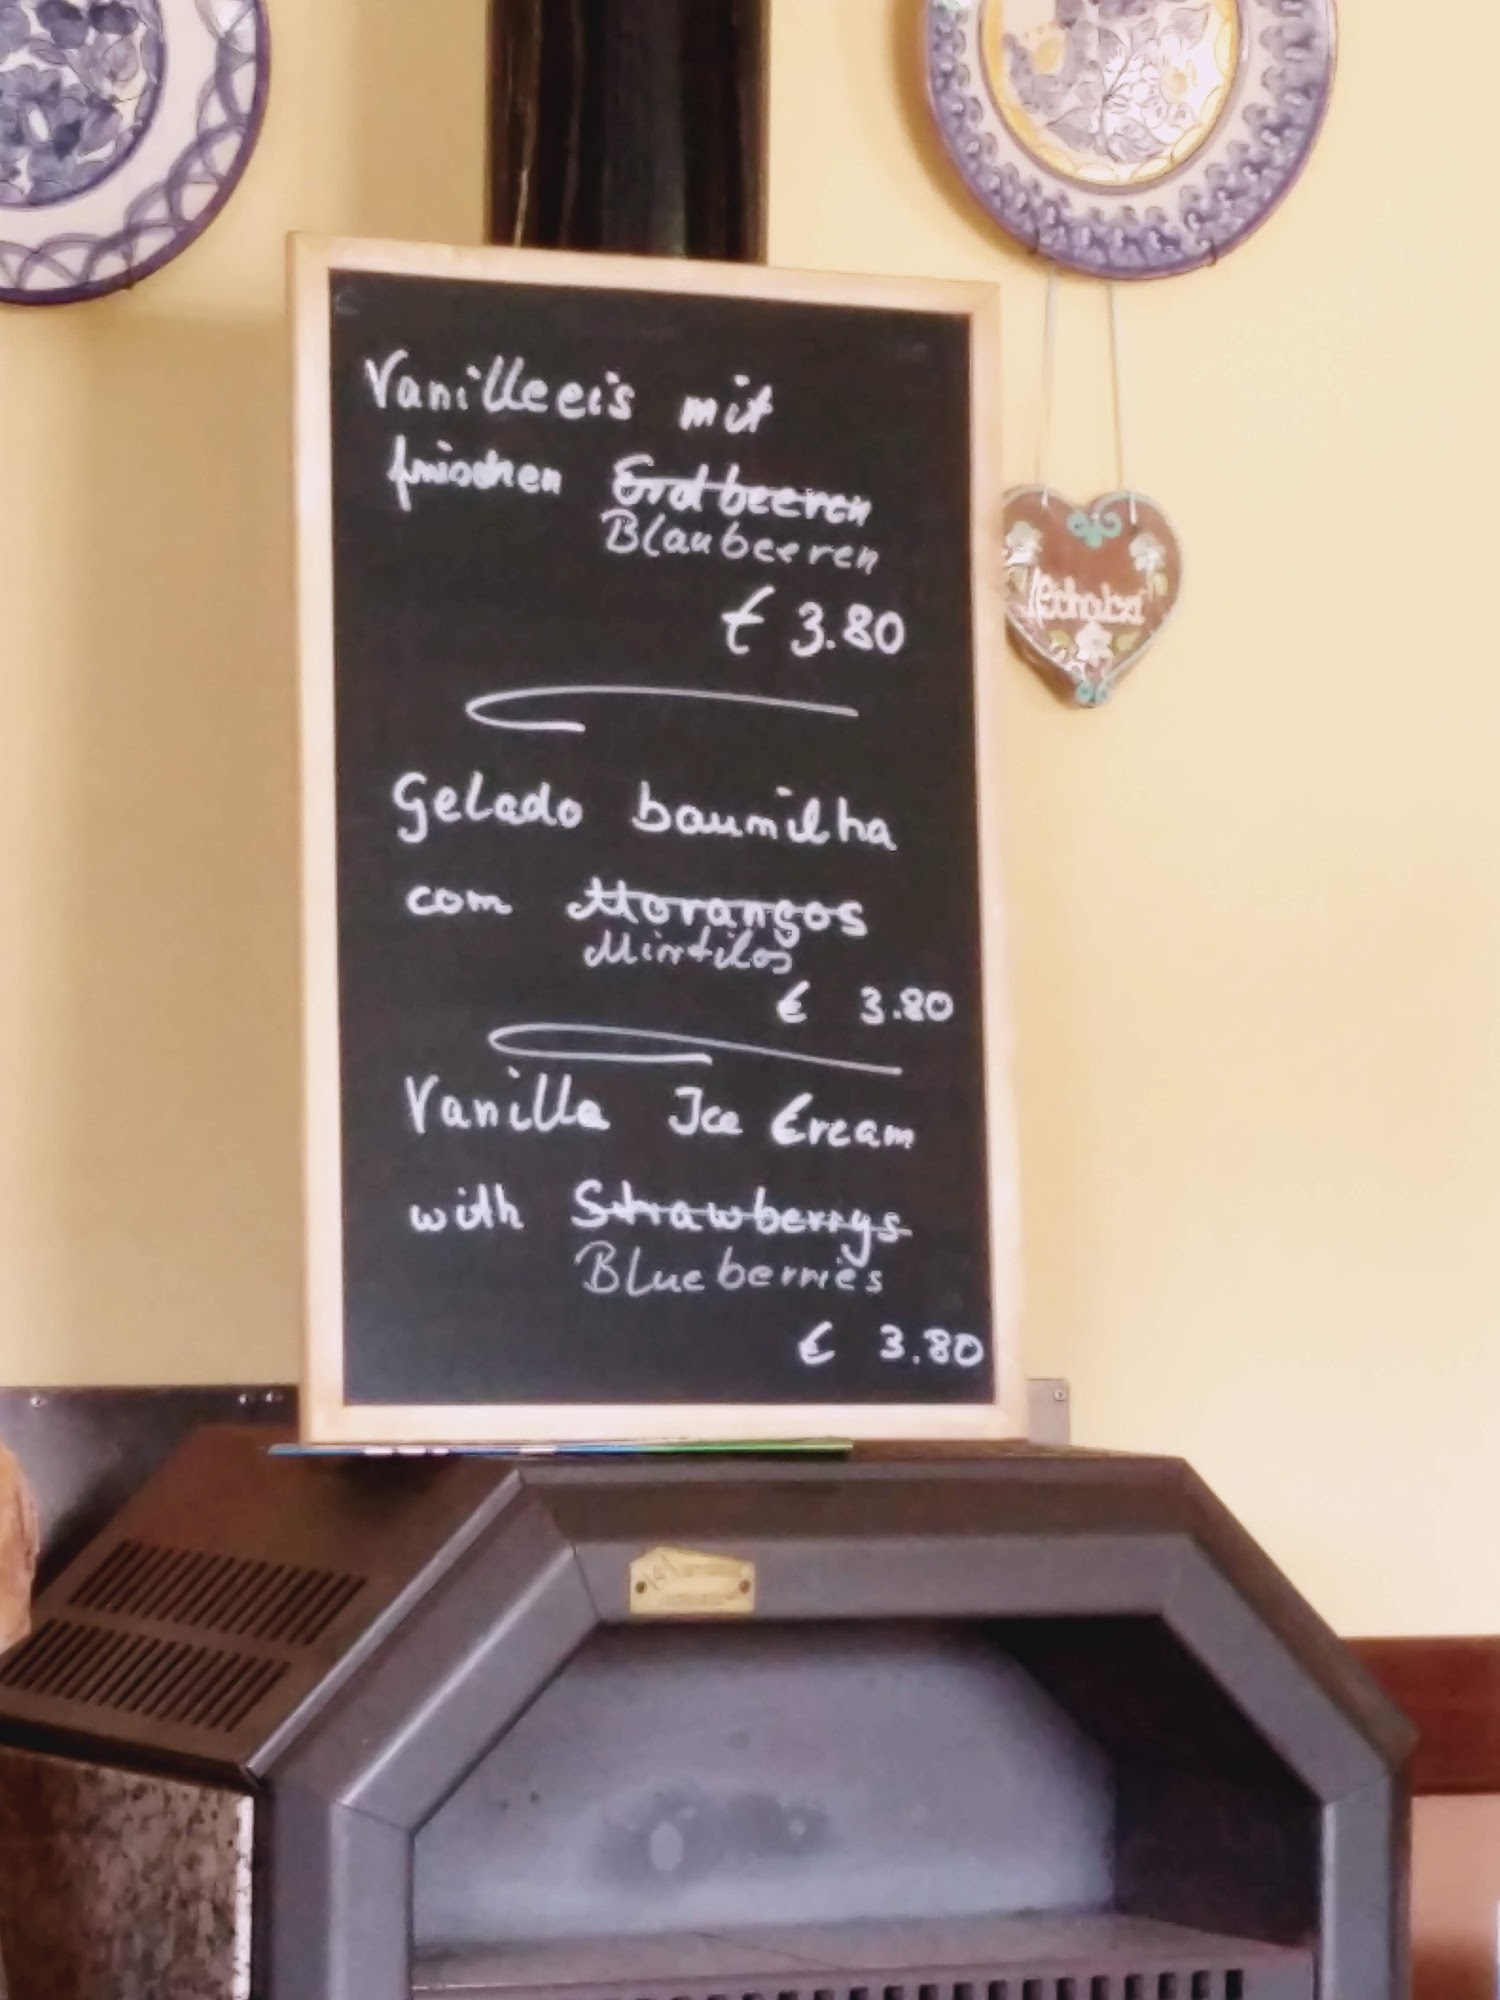 Vanilleeis mit
frischen Erdbeeren
Blaubeeren
€ 3.80
Gelado baunilha
com Morangos
Mirtilos
€ 3.80
Vanilla Ice Cream
with Strawberrys
Blueberries
€ 3.80